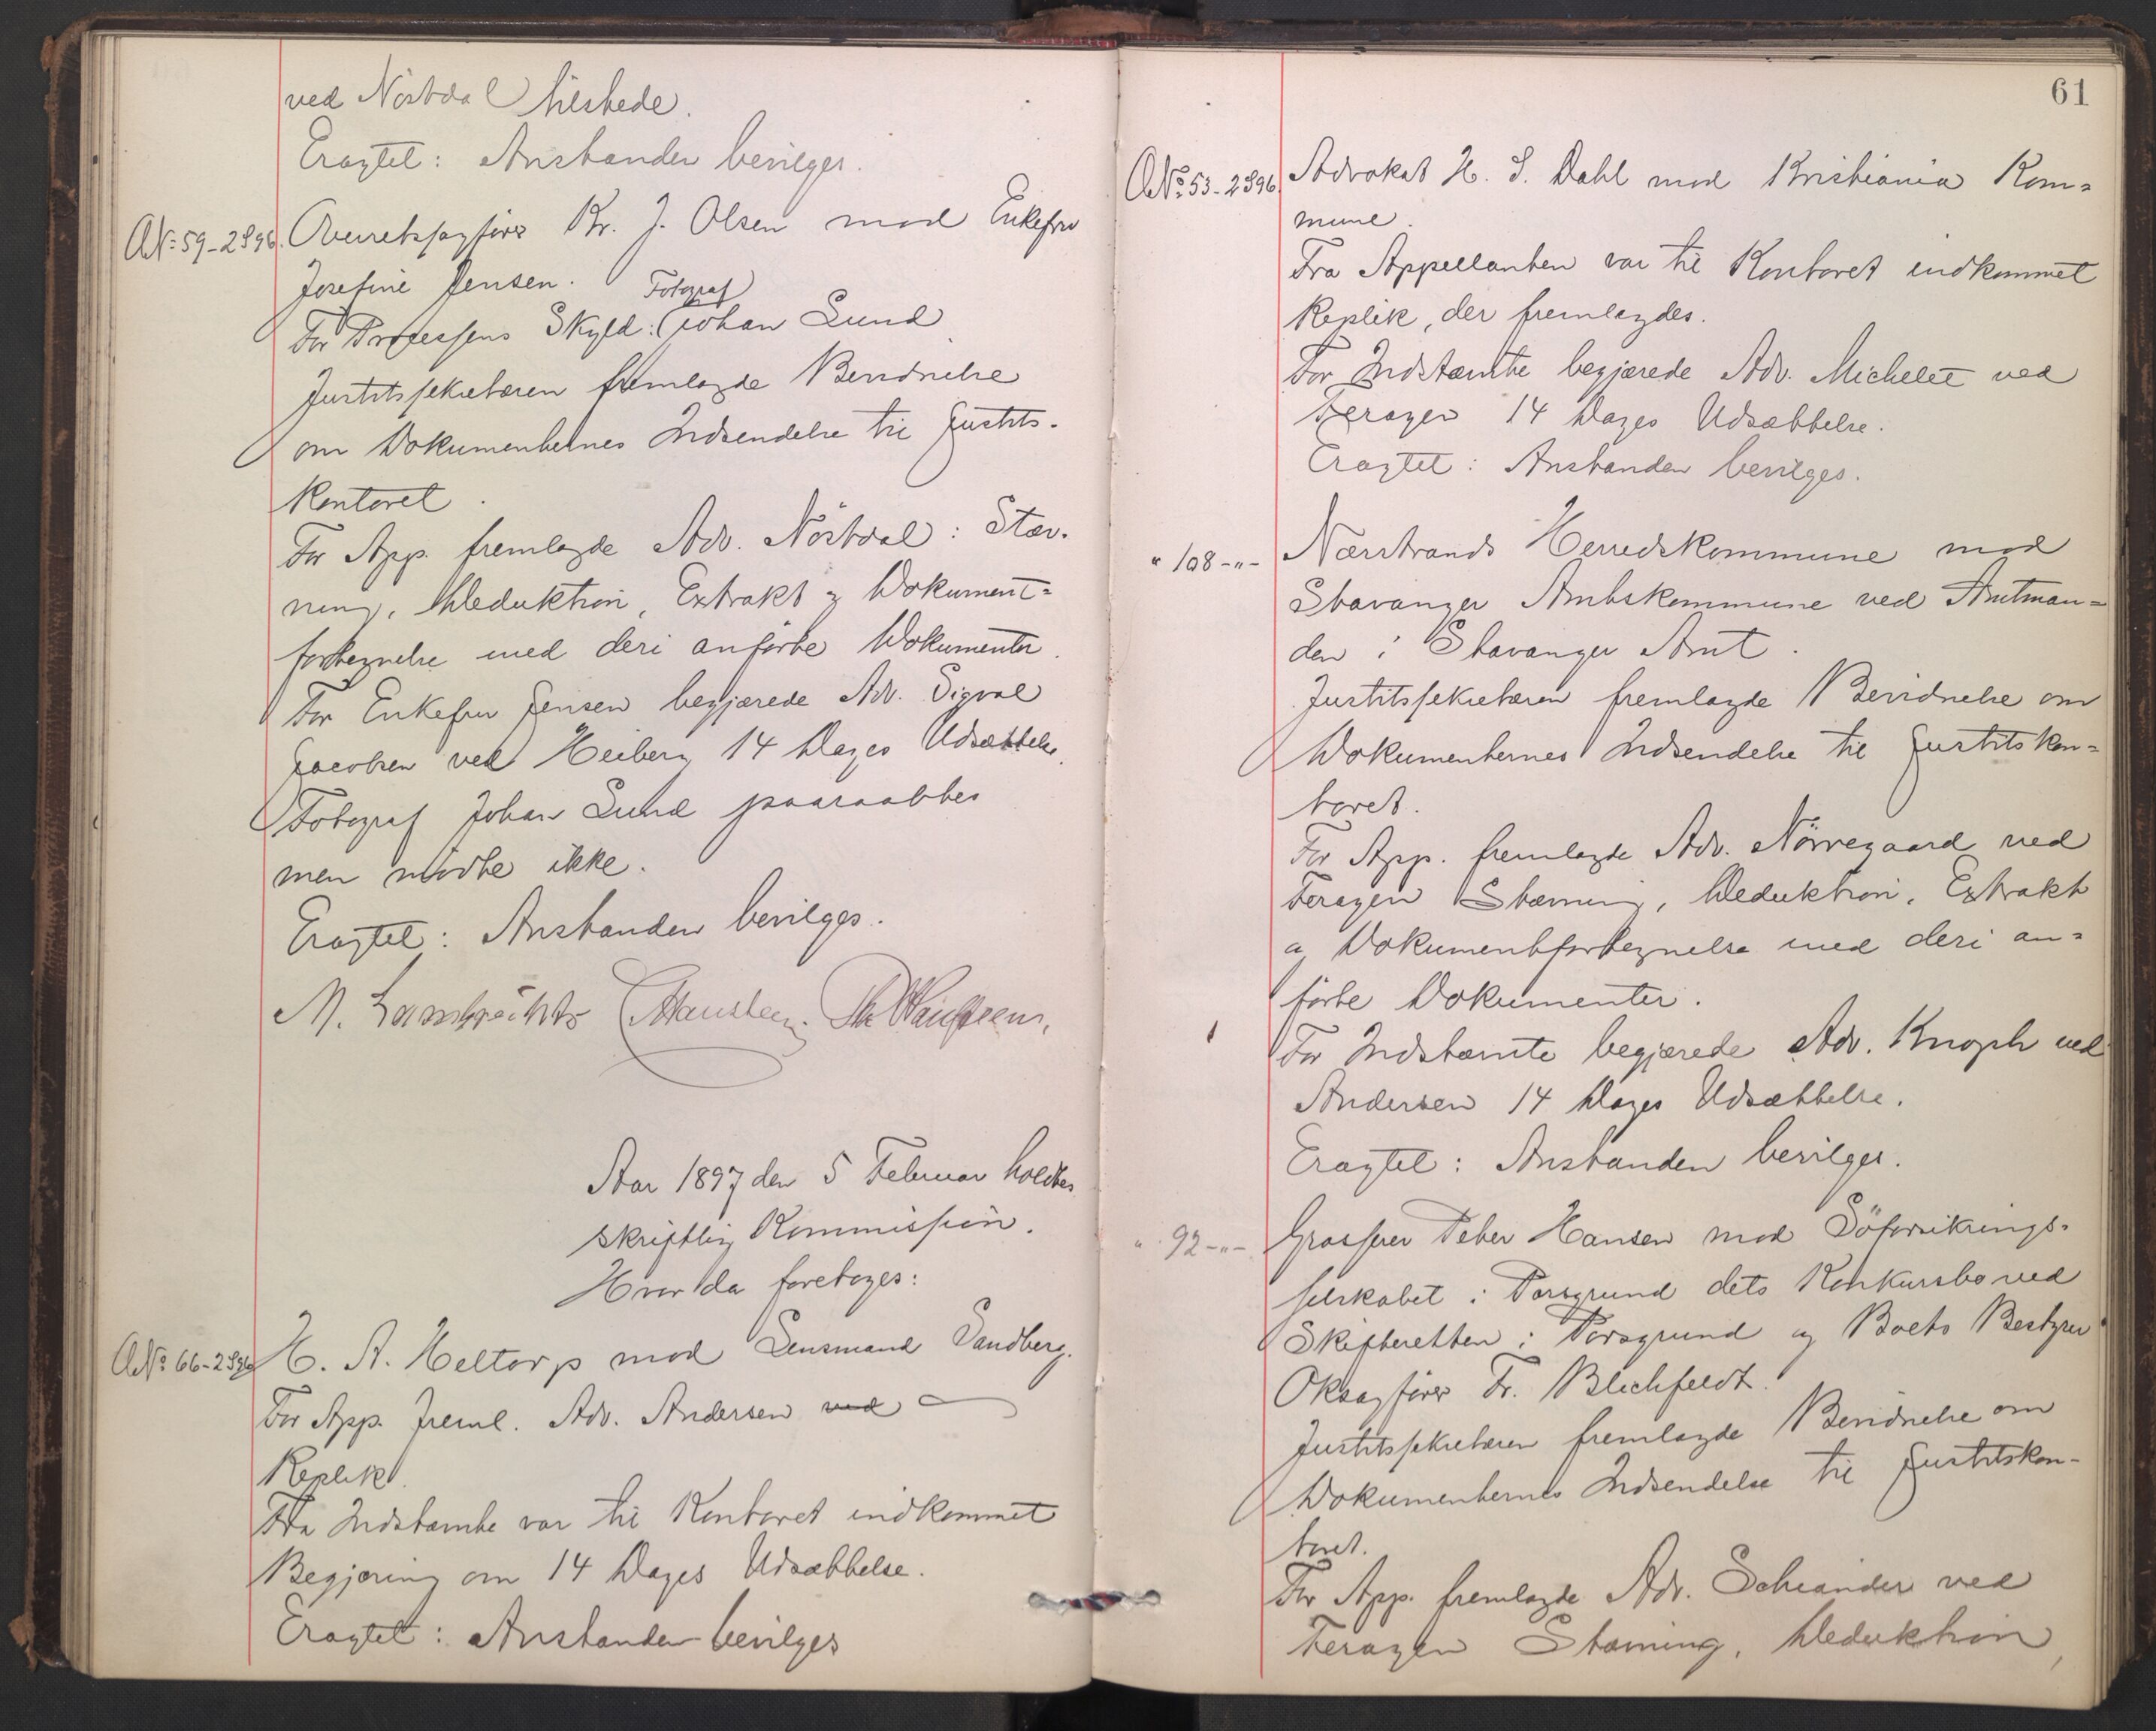 ved Nörtdal tilstede.
Eragtet: Anstanden bevilges.
A№ 59-2896. Overretssagfører Kr. J. Olsen mod Enkefru
Josefine Jensen.
For Processens Skyld: Fotograf Johan Lund
Justitssekretæren fremlagde Bevidnelse
om Dokumenternes Indsendelse til Justits-
kontoret.
For App. fremlagde Adv. Nörtdal: Stæv-
ning, Deduktion, Extrakt og Dokument-
fortegnelse med deri anførte Dokumenter.
For Enkefru Jensen begjærede Adv. Sigval
Jacobsen ved Heiberg 14 Dages Udsættelse.
Fotograf Johan Lund paaraabtes
men mødte ikke.
Eragtet: Anstanden bevilges.
M. Lambrechts
Aar 1897 den 5 Februar holdtes
skriftlig Kommission.
Hvor da foretoges:
A№ 66-2896 H. A. Heltorp mod Lensmand Sandberg.
For App. freml. Adv. Andersen ved
Replik.
Fra Indstævnte var til Kontoret indkommet
Begjæring om 14 Dages Udsættelse.
Eragtet: Anstanden bevilges
61
A№ 53-2896. Advokat H. S. Dahl mod Kristiania Kom-
mune.
Fra Appellanten var til Kontoret indkommet
Replik, der fremlagdes.
For Indstævnte begjærede Adv. Michelet ved
Feragen 14 Dages Udsættelse.
Eragtet: Anstanden bevilges.
" 108-"- Nærstrands Herredskommune mod
Stavanger Amtskommune ved Amtman-
den i Stavanger Amt.
Justitssekretæren fremlagde Bevidnelse om
Dokumenternes Indsendelse til Justitskon-
toret.
For App. fremlagde Adv. Nörregaard ved
Feragen Stævning, Deduktion, Extrakt
og Dokumentfortegnelse med deri an-
førte Dokumenter.
For Indstævnte begjærede Adv. Knoph ved
Andersen 14 Dages Udsættelse.
Eragtet: Anstanden bevilges.
" 92-"- Grosserer Peter Hansen mod Söforsikrings-
selskabet i Porsgrund dets Konkursbo ved
Skifteretten i Porsgrund og Boets Bestyrer
Oksagfører Fr. Blichfeldt.
Justitssekretæren fremlagde Bevidnelse om
Dokumenternes Indsendelse til Justitskon-
toret.
For App. fremlagde Adv. Schiander ved
Feragen Stævning, Deduktion,